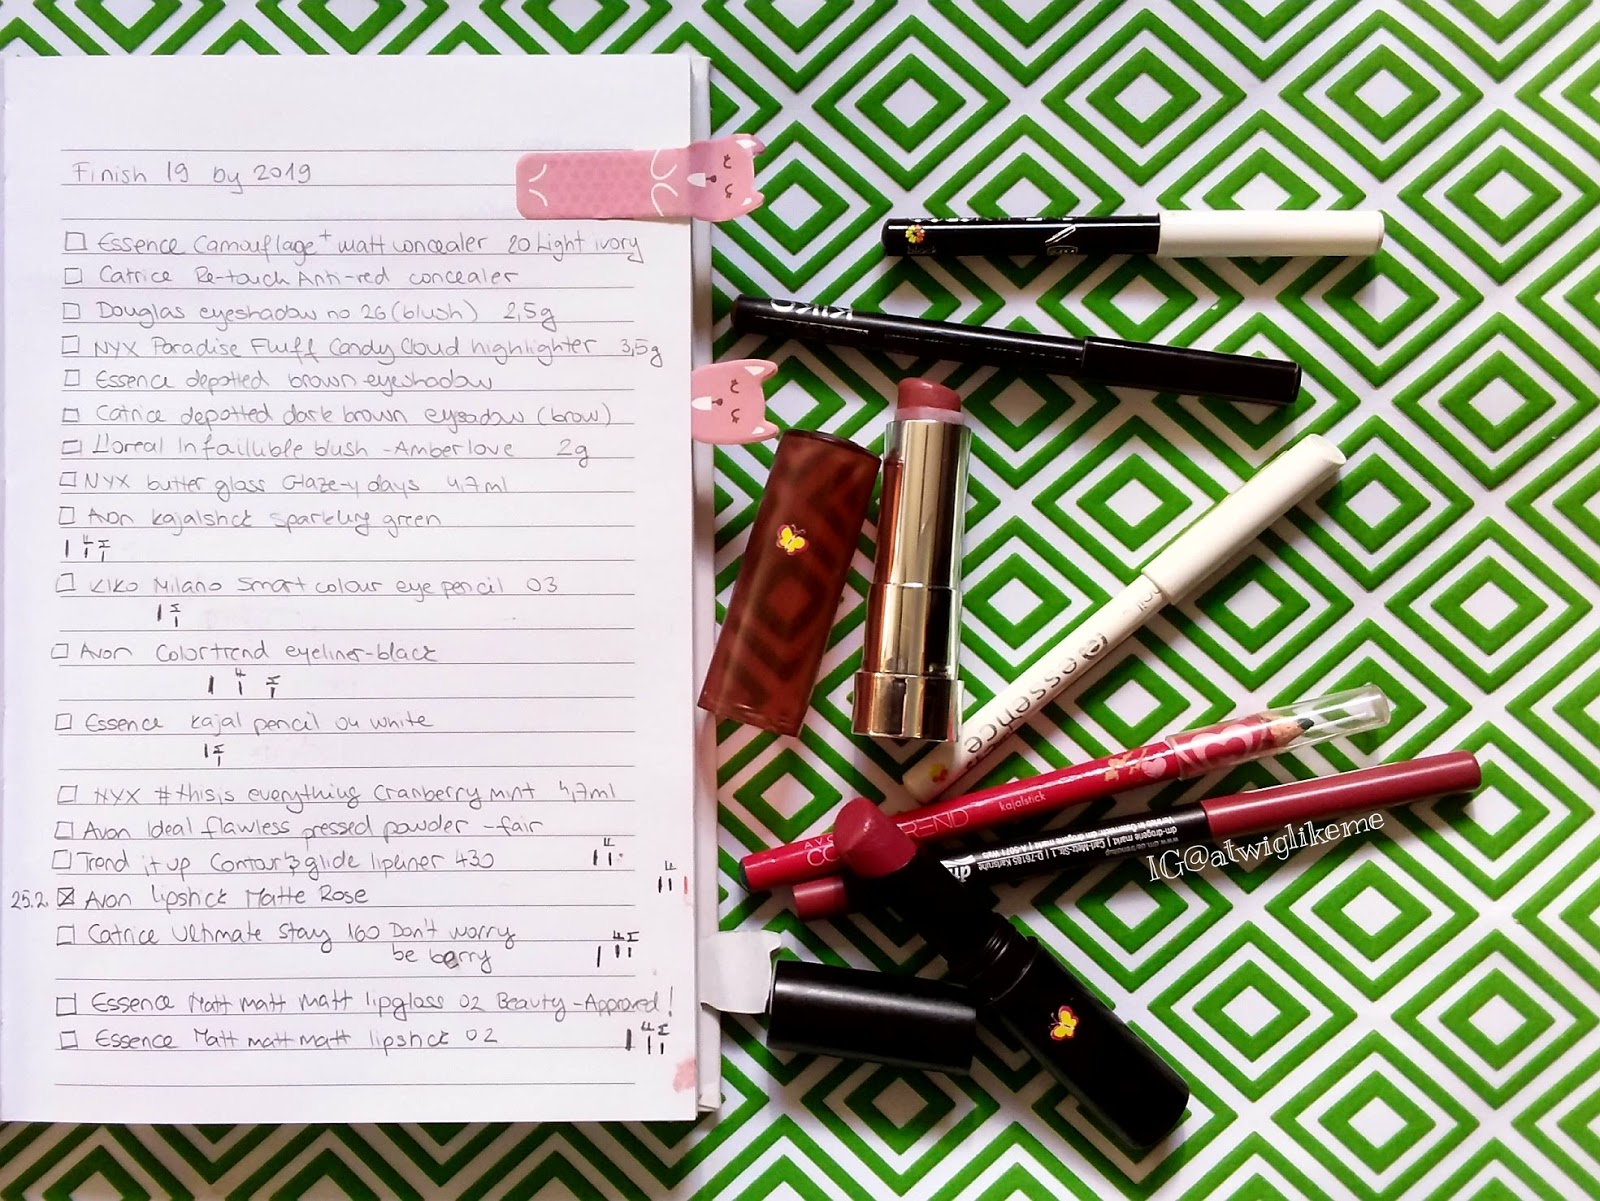 Finish 19 by 2019
Essence Camouflage + matt concealer 20 Light ivory
Catrice Re-touch Anti-red concealer
Douglas eyeshadow no 26 (blush) 2,5g
NYX Paradise Fluff Candy Cloud highlighter 3,5g
Essence depotted brown eyeshadow
Catrice depotted dark brown eyesadow (brow)
L'oreal Infailluble blush - Amber love 2g
NYX butter gloss Glaze-y days 4,7ml
Avon kajalstick sparkling green
KIKO Milano Smart colour eye pencil 03
Avon Colortrend eyeliner-black
Essence kajal pencil 04 white
NYX #thisis everything Cranberry mint 4,7ml
Avon Ideal flawless pressed powder - fair
Trend it up Contour & glide lipliner 430
25.2. Avon lipstick Matte Rose
Catrice Ultimate Stay 160 Don't worry
be berry
Essence Matt matt matt lipglass 02 Beauty-Approved!
Essence Matt matt matt lipstick 02
black
KIKO
essence
kajalstick
AVON
TREND
dm-drogerie markt | Carl-Metz-Str. 1 | D-76185 Karlsruhe
dm
IG@atwiglikeme